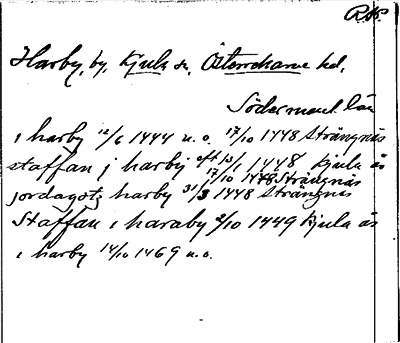 R.K.
Harby, by, Kjula sn, Österrekarne hd,
Södermanl. län
i harby 12/6 1444 u.o. 17/10 1448 Strängnäs
staffan j harby 1448 Kjula ås
17/10 1448 Strängnäs
jordagotz harby 31/3 1448 Strängnäs
Staffan i haraby 2/10 1449 Kjula ås
i harby 14/10 1469 u.o.